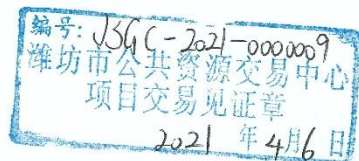 编号: JSGC-2021-0000009
潍坊市公共资源交易中心
项目交易见证章
2021 年 4月6日